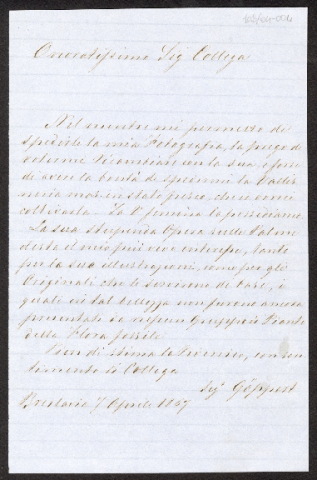 Onoratissimo Sig Collega
Nel mentre mi permetto de
spedirle la mia Fotografia, la prego de
volermi ricambiar con la sua, e forse
de avere la bontà de spedirmi la Vallis
neria mas. in stato fresco, che ora
coltivarla. La femina la possediamo.
La sua stupenda Opera sulle Palme
desta el mio più vivo interesse, tanto
per la sua illustrazioni, come per gli
Originali che le servirono de base, i
quali en tal bellezza non furono ancora
presentati da nessun Gruppo de Piante
della Flora fossile.
Pien di stima la riverisco, con sen
timento di Collega
Sigr Göppert
Breslavia 7 Aprile 1867